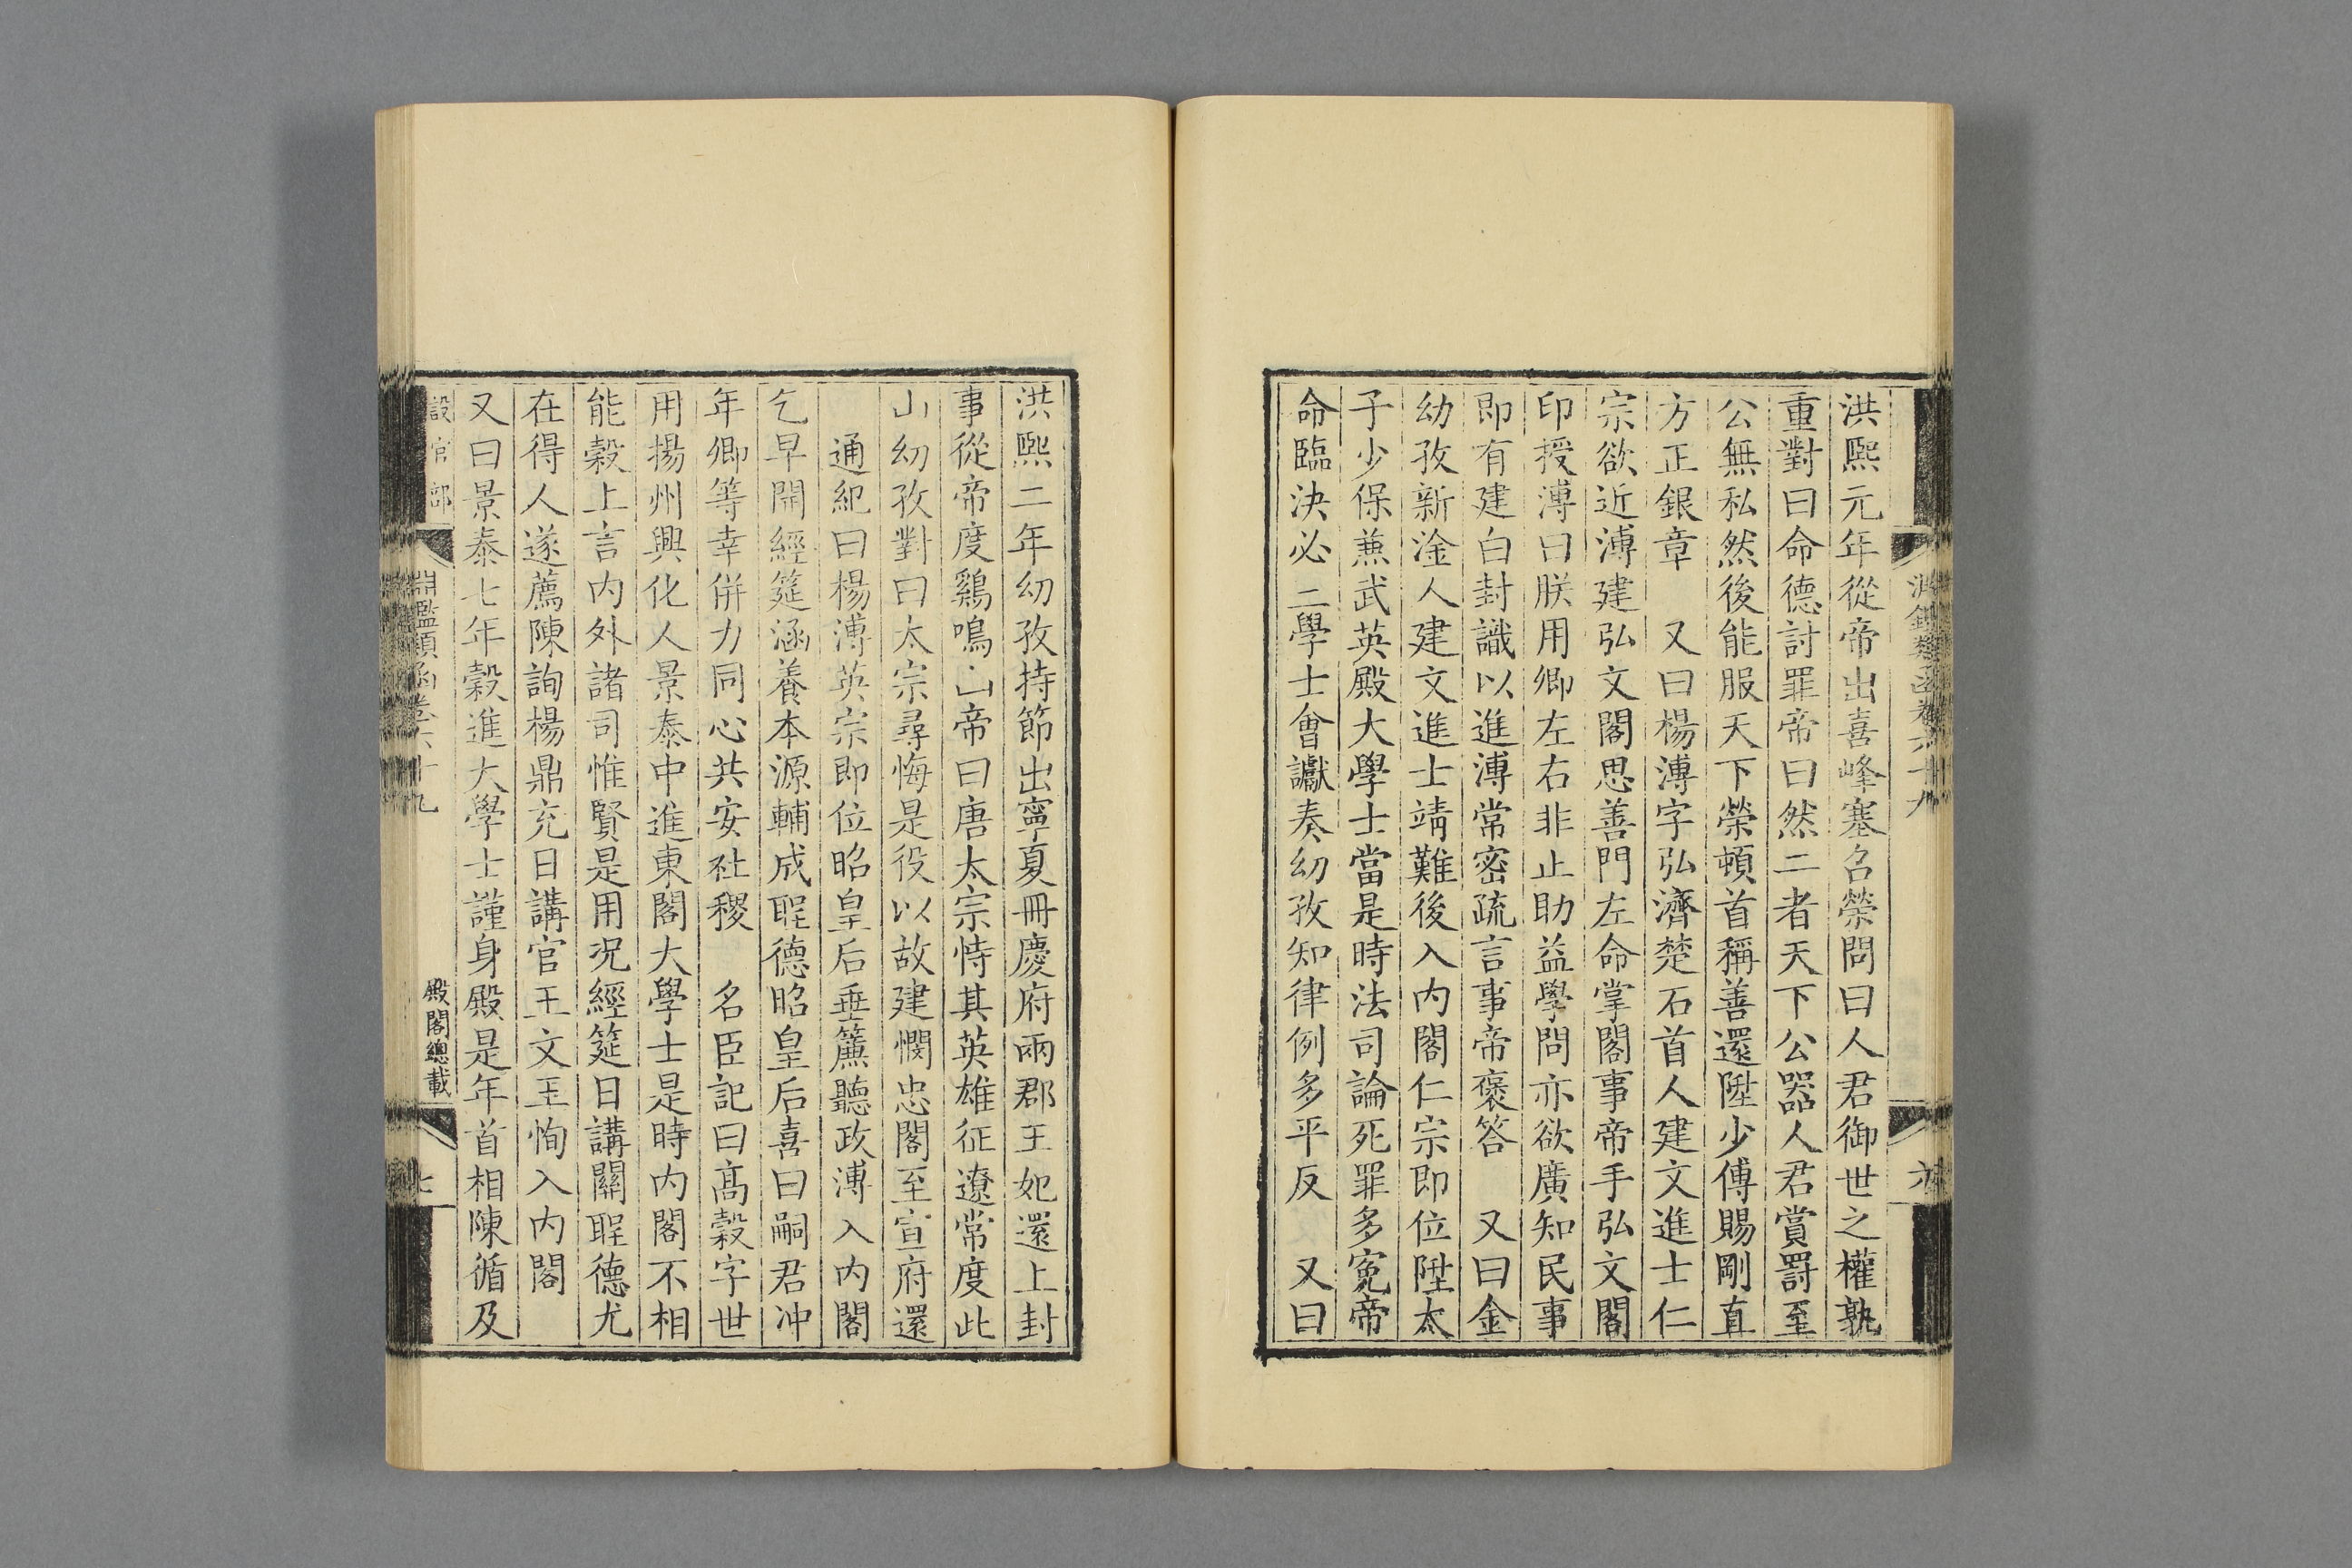 洪熙元年從帝出喜峰塞召榮問曰人君御世之權孰
重對曰命德討罪帝曰然二者天下公器人君賞罰至
公無私然後能服天下榮頓首稱善還陞少傅賜剛直
方正銀章　又曰楊溥字弘濟楚石首人建文進士仁
宗欲近溥建弘文閣思善門左命掌閣事帝手弘文閣
印授溥曰朕用卿左右非止助益學問亦欲廣知民事
即有建白封識以進溥常密疏言事帝褒答　又曰金
幼孜新淦人建文進士靖難後入内閣仁宗即位陞太
子少保兼武英殿大學士當是時法司論死罪多寃帝
命臨決必二學士會讞奏幼孜知律例多平反　又曰
六
洪熙二年幼孜持節出寧夏冊慶府兩郡王妃還上封
事從帝度鷄鳴山帝曰唐太宗恃其英雄征遼常度此
山幼孜對曰太宗尋悔是役以故建憫忠閣至宣府還
通紀曰楊溥英宗即位昭皇后垂簾聽政溥入内閣
乞早開經筵涵養本源輔成聖德昭皇后喜曰嗣君冲
年卿等幸併力同心共安社稷　名臣記曰高穀字世
用揚州興化人景泰中進東閣大學士是時内閣不相
能穀上言内外諸司惟賢是用况經筵日講關聖德尤
在得人遂薦陳詢楊鼎充日講官王文王恂入内閣
又曰景泰七年穀進大學士謹身殿是年首相陳循及
設官部
淵鑑類函卷六十九
殿閣總載
七